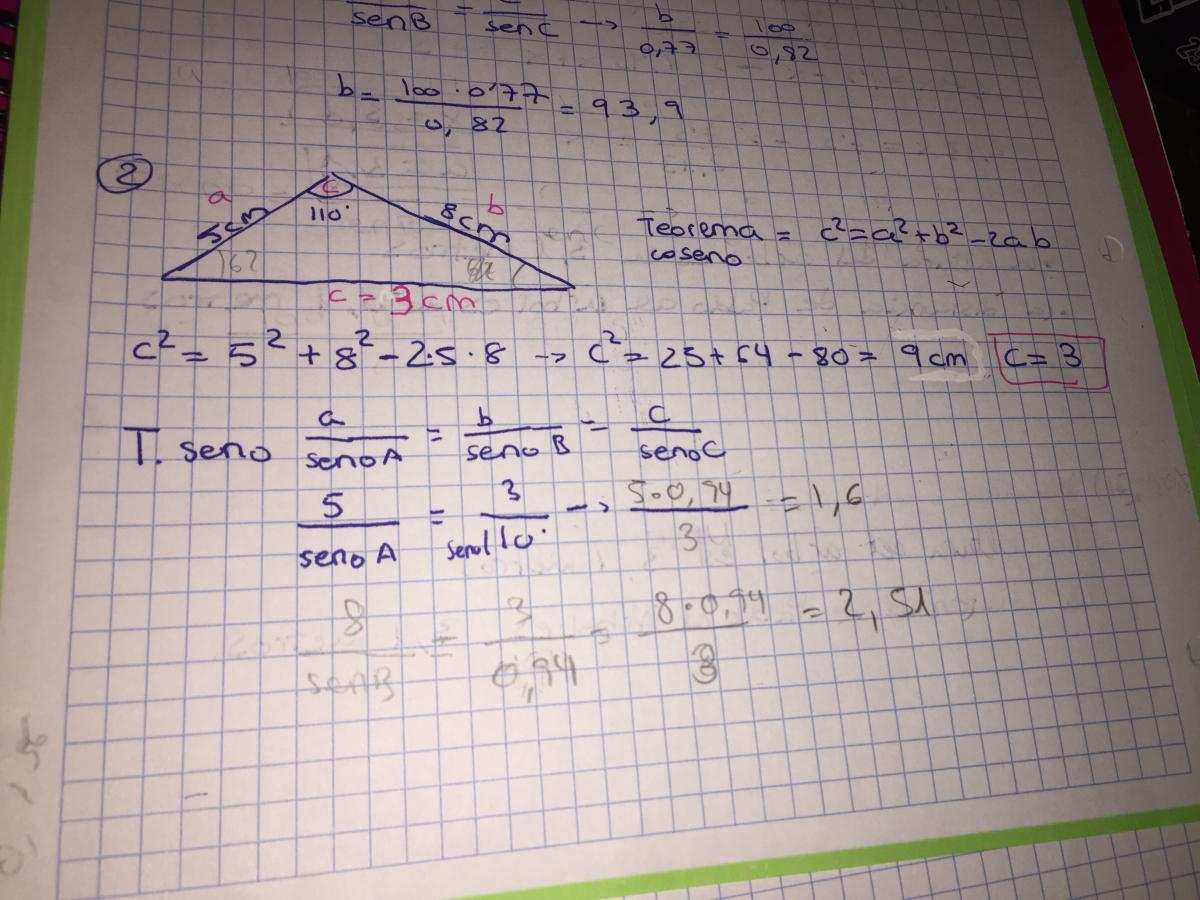 senB = senC → b/0,77 = 100/0,82
b = 100 · 0'77 / 0,82 = 93,9
2
a C b
5cm 110° 8cm
Teorema = c² = a² + b² - 2ab
coseno
c = 3 cm
c² = 5² + 8² - 2·5·8 → c² = 25 + 64 - 80 = 9cm c = 3
T. seno a/senoA = b/seno B = c/senoC
5/seno A = 3/seno110° → 5·0,94/3 = 1,6
8/senB = 3/0,94 = 8·0,94/3 = 2,51